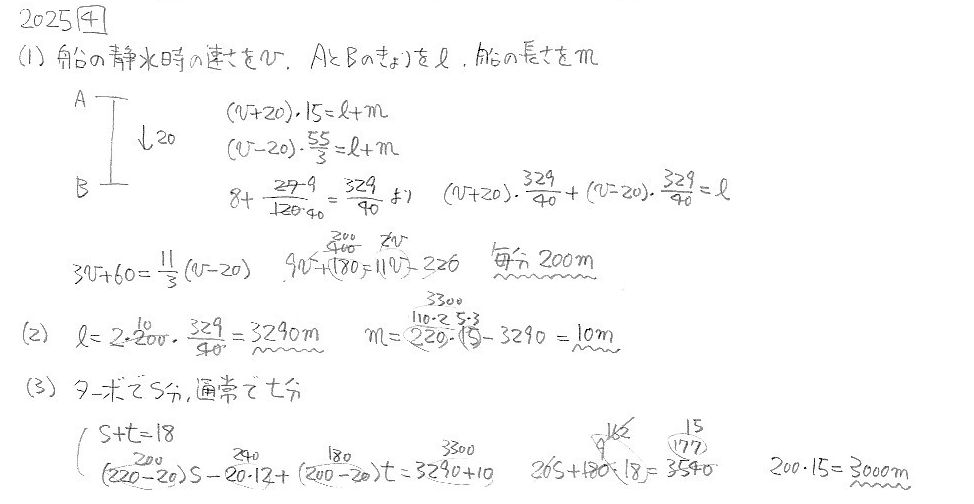 2025 4
(1) 船の静水時の速さをv. AとBのきょりをl. 船の長さをm
A
↓20
B
(v+20)・15=l+m
(v-20)・55/3=l+m
8+ 27 9/120・40 = 329/40 より (v+20)・329/40+(v-20)・329/40=l
3v+60=11/3(v-20) 200 400 2v 9v+180=11v-220 毎分200m
(2) l=2・200 10・329/40=3290m 3300 110・2 5・3 m=220・15-3290=10m
(3) ターボでs分,通常でt分
s+t=18
200 240 180 3300 (220-20)s-20・12+(200-20)t=3290+10 9 162 15 177 20s+180・18=3540 200・15=3000m